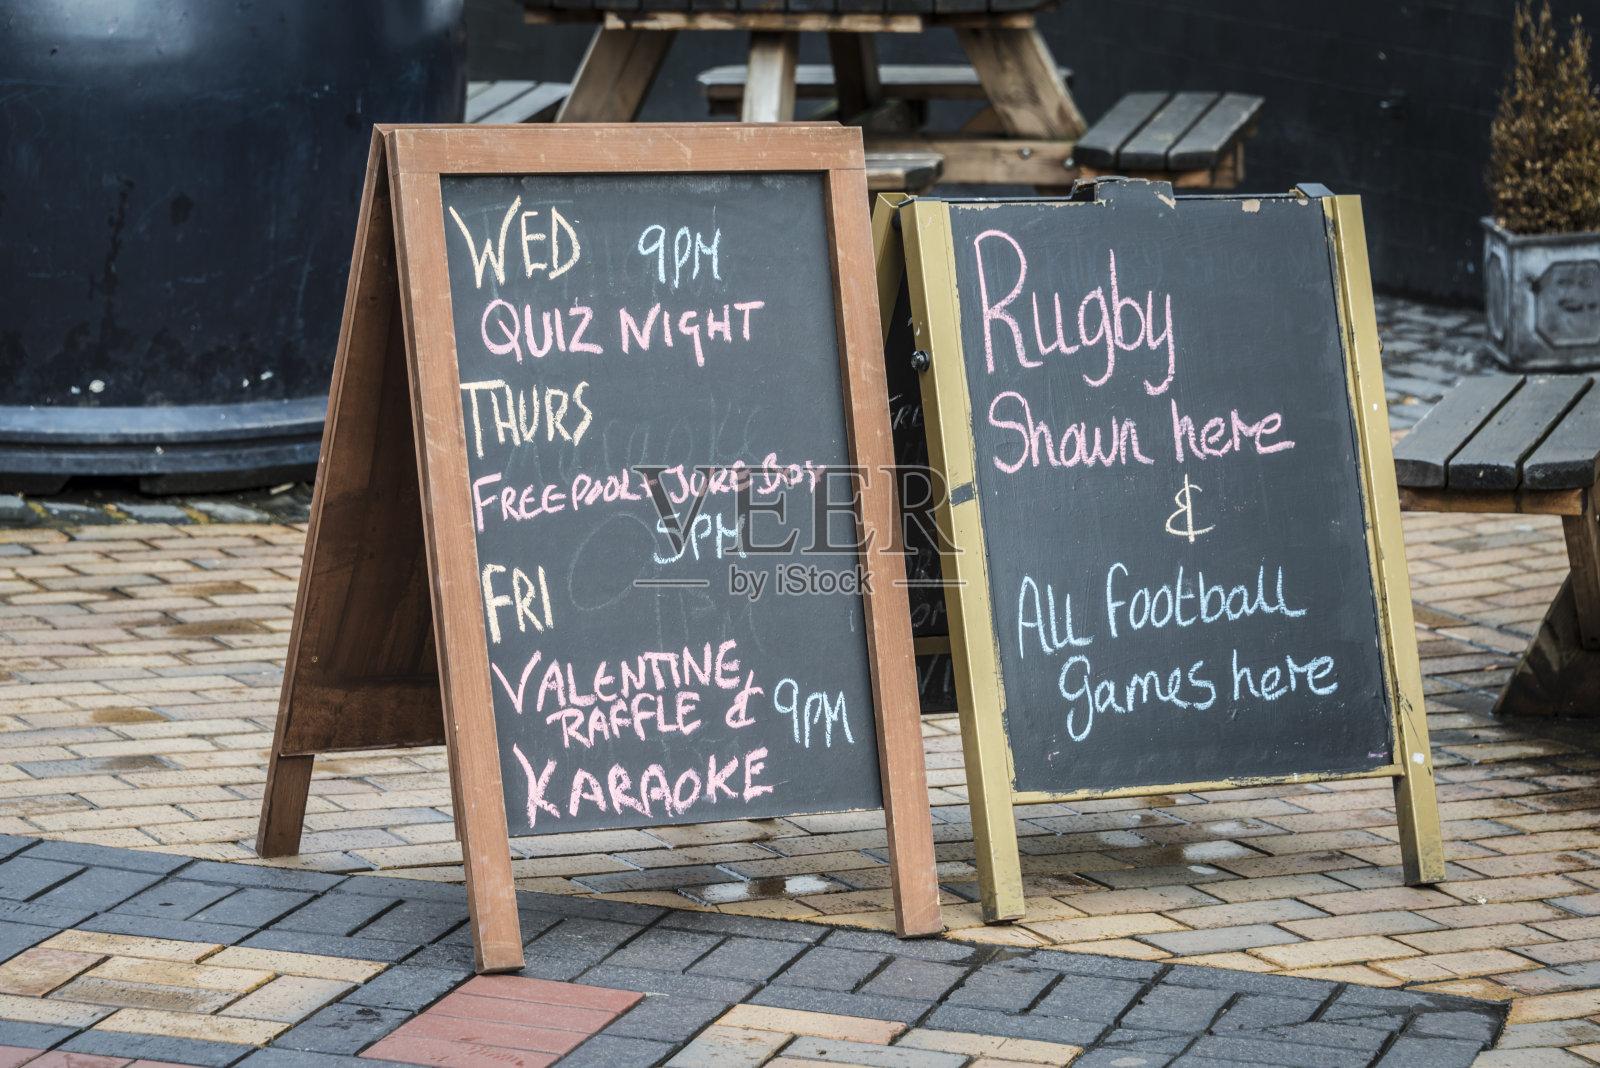 WED 9PM
QUIZ NIGHT
THURS
FREE POOL + JUKE BOX
5PM
FRI
VALENTINE
RAFFLE & 9PM
KARAOKE
Rugby
Shown here
&
All football
games here
VEER
by iStock